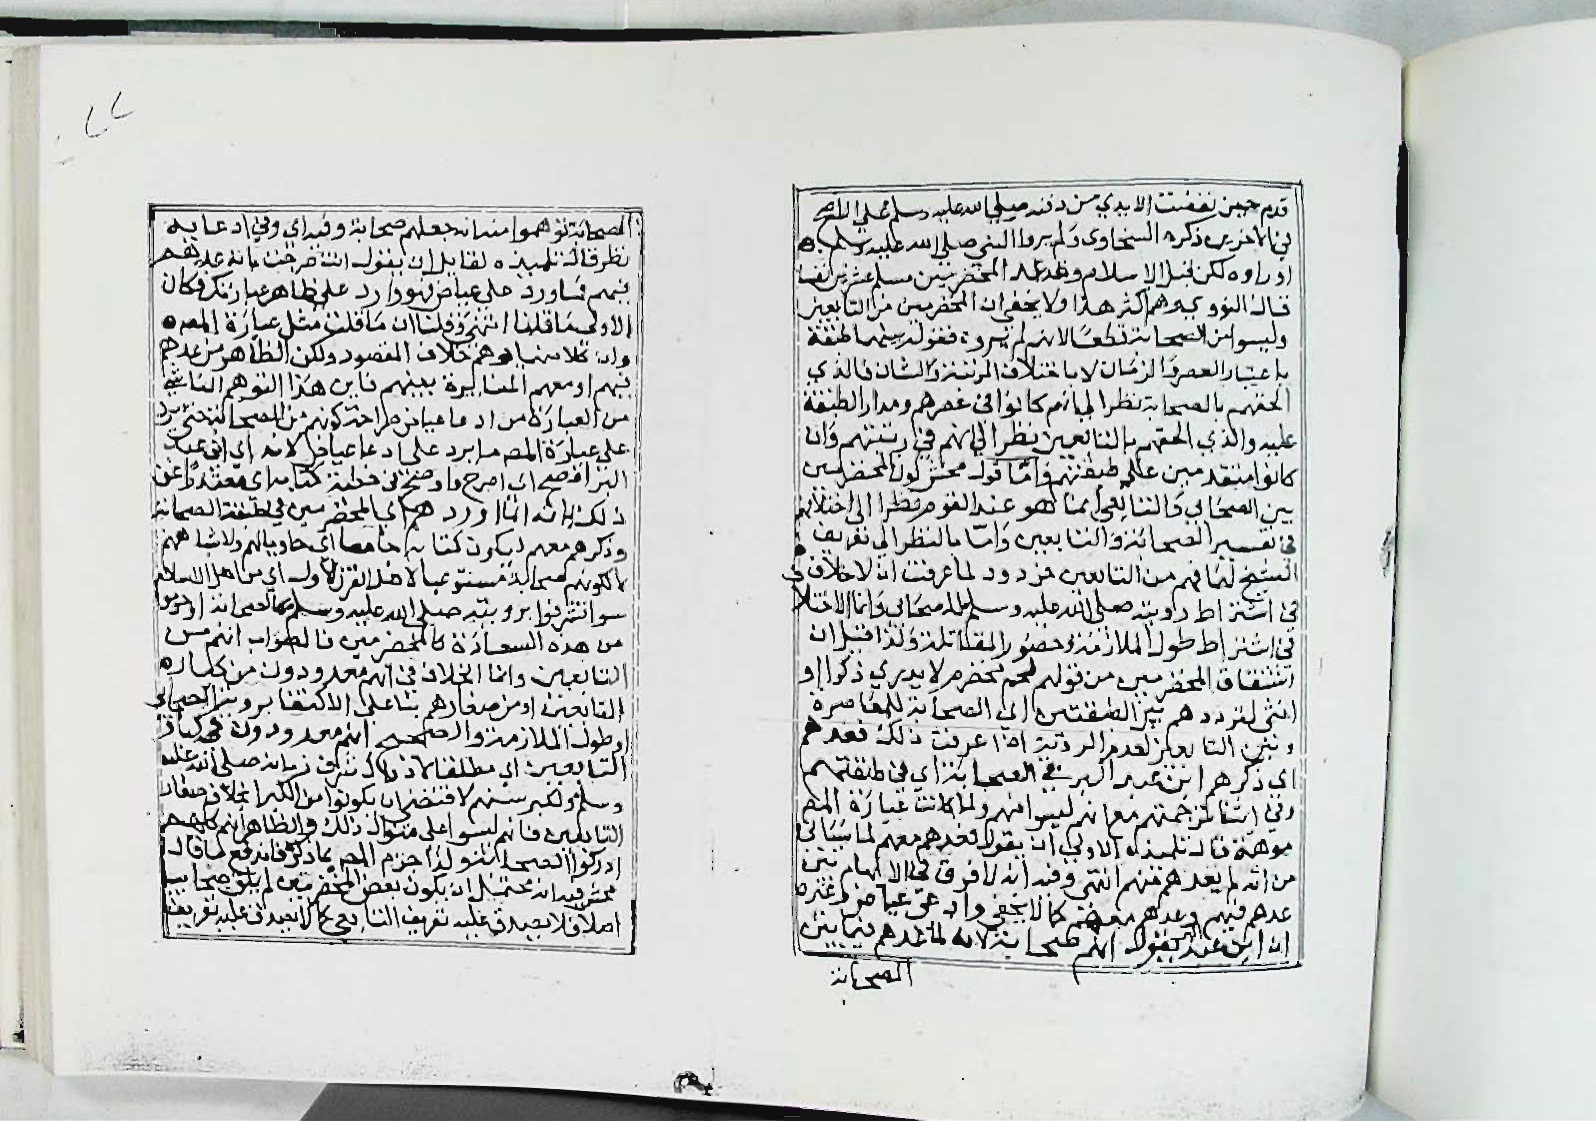 قدم حين نفضت الايدي من دفنه صلى الله عليه وسلم على الاصح
في الآخرين ذكره السخاوي ولم يروا النبي صلى الله عليه وسلم
او راوه لكن قبل الاسلام وقد عد المخضرمين مسلم عشرين نفسا
قال النووي وهم اكثر هذا ولا يخفى ان المخضرمين من التابعين
وليسوا من الصحابة قطعا لانهم لم يروه فقوله بينهما طبقة
باعتبار العصر والزمان لا باختلاف المرتبة والشان فالذي
الحقهم بالصحابة نظر الى انهم كانوا في عصرهم ومدار الطبقة
عليه والذي الحقهم بالتابعين نظر الى انهم في رتبتهم وان
كانوا متقدمين على طبقتهم واما قول محش كون المخضرمين
بين الصحابي والتابعي انما هو عند القوم نظرا الى اختلافهم
في تفسير الصحابة والتابعين واما بالنظر الى تعريف
الشيخ لهما فهم من التابعين مردود لما عرفت ان لا خلاف
في اشتراط رؤيته صلى الله عليه وسلم للصحابي وانما الاختلاف
في اشتراط طول الملازمة وحضور المقاتلة ولذا قيل ان
اشتقاق المخضرمين من قولهم لحم مخضرم لا يدري ذكر او
انثى لترددهم بين الطبقتين اي الصحابة للمعاصرة
وبين التابعين لعدم الرؤية اذا عرفت ذلك فعدهم
اي ذكرهم ابن عبد البر في الصحابة اي في طبقتهم
وفي اثناء ترجمتهم مع انهم ليسوا منهم ولما كانت عبارة المص
موهمة قال تلميذه الاولى ان يقول فعدهم معهم لما سيأتي
من انه لم يعدهم منهم انتهى وفيه انه لا فرق في الابهام بين
عدهم فيهم وعدهم معهم كما لا يخفى وادعى عياض وغيره
ان ابن عبد البر يقول انهم صحابة لانه لما عدهم فيما بين
الصحابة
الصحابة توهموا منه انه جعلهم صحابة وفيه اي وفي ادعايه
نظر قال تلميذه لقايل ان يقول انت صرحت بانه عدهم
فيهم فما ورد على عياض فهو وارد على ظاهر عبارتك فكان
الاولى ما قلنا انتهى وقلت ان ما قلت مثل عبارة المص
وان كلاهما يوهم خلاف المقصود ولكن الظاهر من عدهم
فيهم او معهم المغايرة بينهم فاين هذا التوهم الناشي
من العبارة من ادعا عياض صراحة كونهم من الصحابة حتى يرد
على عبارة المص ما يرد على ادعا عياض لانه اي ابن عبد
البر افصح اي اصرح واوضح في خطبة كتابه اي معتذرا عن
ذلك بانه انما اورد هم اي المخضرمين في طبقة الصحابة
وذكرهم معهم ليكون كتابه جامعا اي حاويا لهم ولاشباههم
لا لكونهم صحابة مستوعبا لاهل القرن الاول اي من اهل الاسلام
سوا تشرفوا برويته صلى الله عليه وسلم كالصحابة او حرموا
من هذه السعادة كالمخضرمين فالصواب انهم من
التابعين وانما الخلاف في انهم معدودون من كباره
التابعين او من صغارهم بنا على الاكتفا بروية الصحابي
او طول الملازمة والصحيح انهم معدودون في كبار
التابعين اي مطلقا لادراك شرف زمانه صلى الله عليه
وسلم ولكبر سنهم لاقتضا ان يكونوا من الكبرا بخلاف صغار
التابعين فانهم ليسوا على منوال ذلك والظاهر انهم كلهم
ادركوا الصحابة ولذا جزم المص بما ذكر فاندفع ما قال
محش فيه انه يحتمل ان يكون بعض المخضرمين لم يلق صحابيا
اصلا فلا يصدق عليه تعريف التابعي كما لا يصدق عليه تعريف